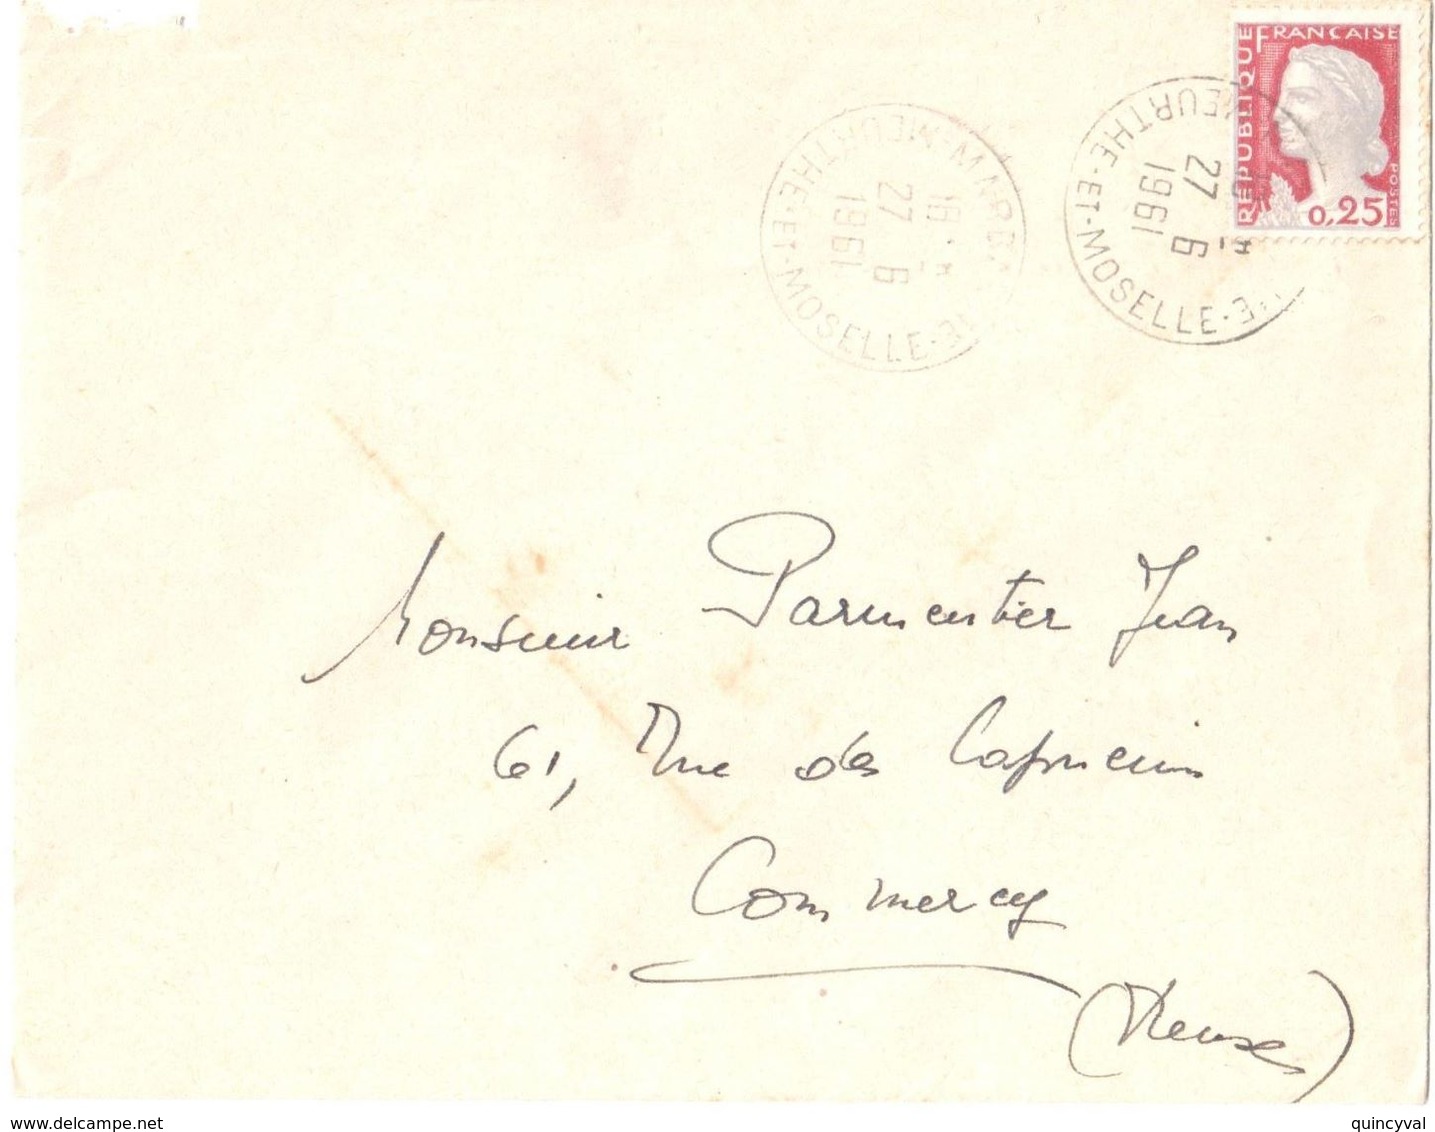 RÉPUBLIQUE FRANÇAISE
POSTES
0,25
27 6
1961
MEURTHE-ET-MOSELLE
27 6
1961
MEURTHE-ET-MOSELLE
Monsieur Parmentier Jean
61, Rue des Capucins
Commercy
(Meuse)
www.delcampe.net
quincyval